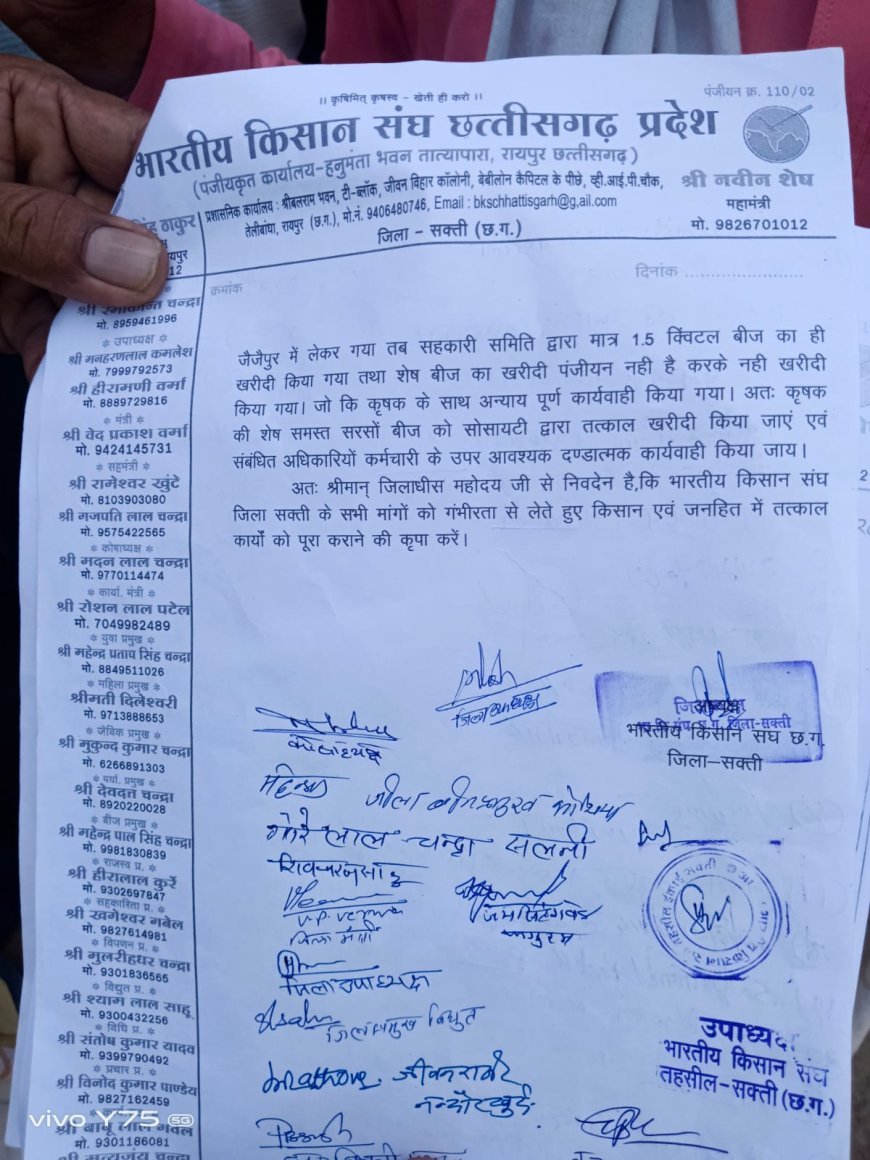 ।। कृषिमित् कृषस्व - खेती ही करो ।।
पंजीयन क्र. 110/02
भारतीय किसान संघ छत्तीसगढ़ प्रदेश
(पंजीयकृत कार्यालय-हनुमंता भवन तात्यापारा, रायपुर छत्तीसगढ़)
प्रशासनिक कार्यालय : श्रीबलराम भवन, टी-ब्लॉक, जीवन विहार कॉलोनी, बेबीलोन कैपिटल के पीछे, व्ही.आई.पी.चौक,
तेलीबांधा, रायपुर (छ.ग.), मो.नं. 9406480746, Email : bkschhattisgarh@g,ail.com
ठाकुर
12
श्री नवीन शेष
महामंत्री
मो. 9826701012
जिला - सक्ती (छ.ग.)
क्रमांक
दिनांक ........................
चन्द्रा
मो. 8959461996
* उपाध्यक्ष *
श्री मनहरणलाल कमलेश
मो. 7999792573
श्री हीरामणी वर्मा
मो. 8889729816
* मंत्री *
श्री वेद प्रकाश वर्मा
मो. 9424145731
* सहमंत्री *
श्री रामेश्वर खुंटे
मो. 8103903080
श्री गजपति लाल चन्द्रा
मो. 9575422565
* कोषाध्यक्ष *
श्री मदन लाल चन्द्रा
मो. 9770114474
* कार्या. मंत्री *
श्री रोशन लाल पटेल
मो. 7049982489
* युवा प्रमुख *
श्री महेन्द्र प्रताप सिंह चन्द्रा
मो. 8849511026
* महिला प्रमुख *
श्रीमती दिलेश्वरी
मो. 9713888653
* जैविक प्रमुख *
श्री मुकुन्द कुमार चन्द्रा
मो. 6266891303
* पर्या. प्रमुख *
श्री देवदत्त चन्द्रा
मो. 8920220028
* बीज प्रमुख *
श्री महेन्द्र पाल सिंह चन्द्रा
मो. 9981830839
* राजस्व प्र. *
श्री हीरालाल कुर्रे
मो. 9302697847
* सहकारिता प्र. *
श्री खगेश्वर गबेल
मो. 9827614981
* विपणन प्र. *
श्री मुलरीहधर चन्द्रा
मो. 9301836565
* विद्युत प्र. *
श्री श्याम लाल साहू
मो. 9300432256
* विधि प्र. *
श्री संतोष कुमार यादव
मो. 9399790492
* प्रचार प्र. *
श्री विनोद कुमार पाण्डेय
मो. 9827162459
श्री बाबू लाल गबेल
मो. 9301186081
जैजैपुर में लेकर गया तब सहकारी समिति द्वारा मात्र 1.5 क्विंटल बीज का ही
खरीदी किया गया तथा शेष बीज का खरीदी पंजीयन नही है करके नही खरीदी
किया गया। जो कि कृषक के साथ अन्याय पूर्ण कार्यवाही किया गया। अतः कृषक
की शेष समस्त सरसों बीज को सोसायटी द्वारा तत्काल खरीदी किया जाएं एवं
संबंधित अधिकारियों कर्मचारी के उपर आवश्यक दण्डात्मक कार्यवाही किया जाय।
अतः श्रीमान् जिलाधीस महोदय जी से निवदेन है,कि भारतीय किसान संघ
जिला सक्ती के सभी मांगों को गंभीरता से लेते हुए किसान एवं जनहित में तत्काल
कार्यो को पूरा कराने की कृपा करें।
भारतीय किसान संघ छ.ग.
जिला-सक्ती
कोषाध्यक्ष
चन्द्रा सलनी
जिला मंत्री
जिला उपाध्यक्ष
उपाध्यक्ष
भारतीय किसान संघ
तहसील-सक्ती (छ.ग.)
vivo Y75 5G